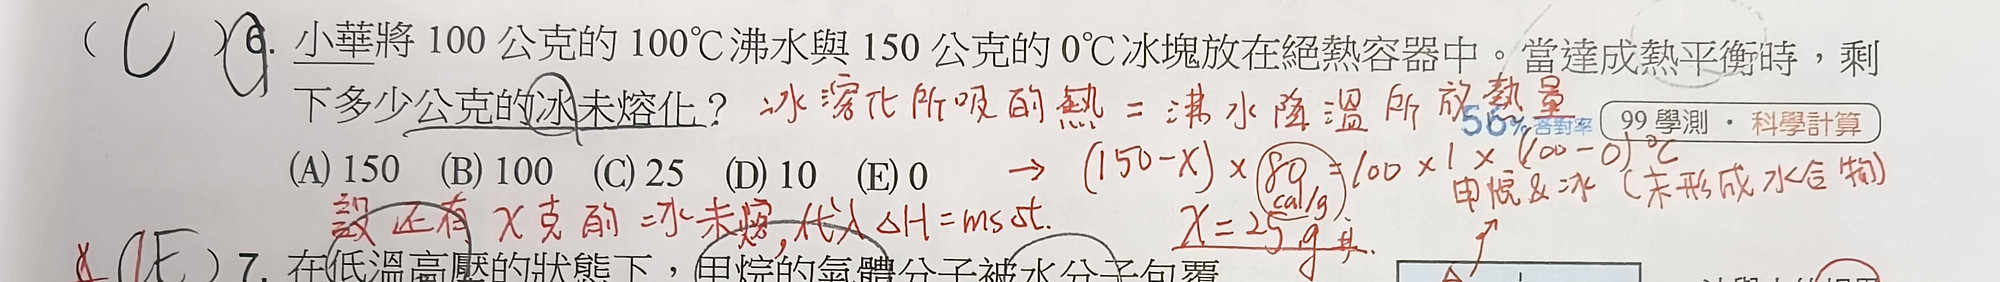 ( C ) 6. 小華將 100 公克的 100℃沸水與 150 公克的 0℃冰塊放在絕熱容器中。當達成熱平衡時，剩
下多少公克的冰未熔化？ 冰溶化所吸的熱 = 沸水降溫所放熱量
56% 答對率 99 學測・科學計算
(A) 150 (B) 100 (C) 25 (D) 10 (E) 0 → (150-X) × 80 = 100 × 1 × (100-0)℃
cal/g
甲烷&冰 (未形成水合物)
設还有 X 克的冰未熔, 代入 ΔH = msΔt.
X = 25g
(E) 7. 在低溫高壓的狀態下，甲烷的氣體分子被水分子包覆